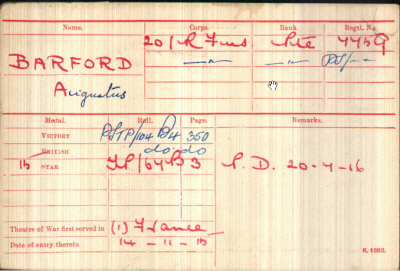 Name. Corps. Rank Regtl. No.
20/R Fus Pte 4459
BARFORD —"— —"— PS/—"—
Augustus
Medal. Roll. Page. Remarks.
VICTORY PSTP/104 B4 350
BRITISH do do
15 STAR TP/64 B 3 P. D. 20-4-16
Theatre of War first served in (1) France
Date of entry therein 14-11-15
K. 1380.